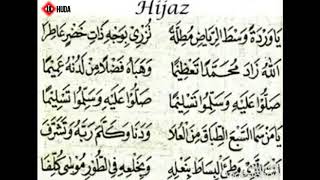 HUDA
Hijaz
يَا وَرْدَةً وَسْطَ الرِّيَاضِ مُطِلَّةً تُزْرِي بِوَجْهٍ ذَاتِ خَضْرٍ عَاطِرَا
اَللهُ زَادَ مُحَمَّدًا تَعْظِيْمًا وَحَبَاهُ فَضْلًا مِنْ لَدُنْهُ عَمِيْمًا
صَلُّوْا عَلَيْهِ وَسَلِّمُوْا تَسْلِيْمًا صَلُّوْا عَلَيْهِ وَسَلِّمُوْا تَسْلِيْمًا
يَا مَنْ سَمَا السَّبْعَ الطِّبَاقَ مِنَ الْعُلَا وَدَنَا وَكَلَّمَ رَبَّهُ وَتَشَرَّفَ
وَطِئَ الْبِسَاطَ بِنَعْلِهِ وَبِخَلْعِهِ فِي الطُّوْرِ مُوْسَى كُلِّفَا